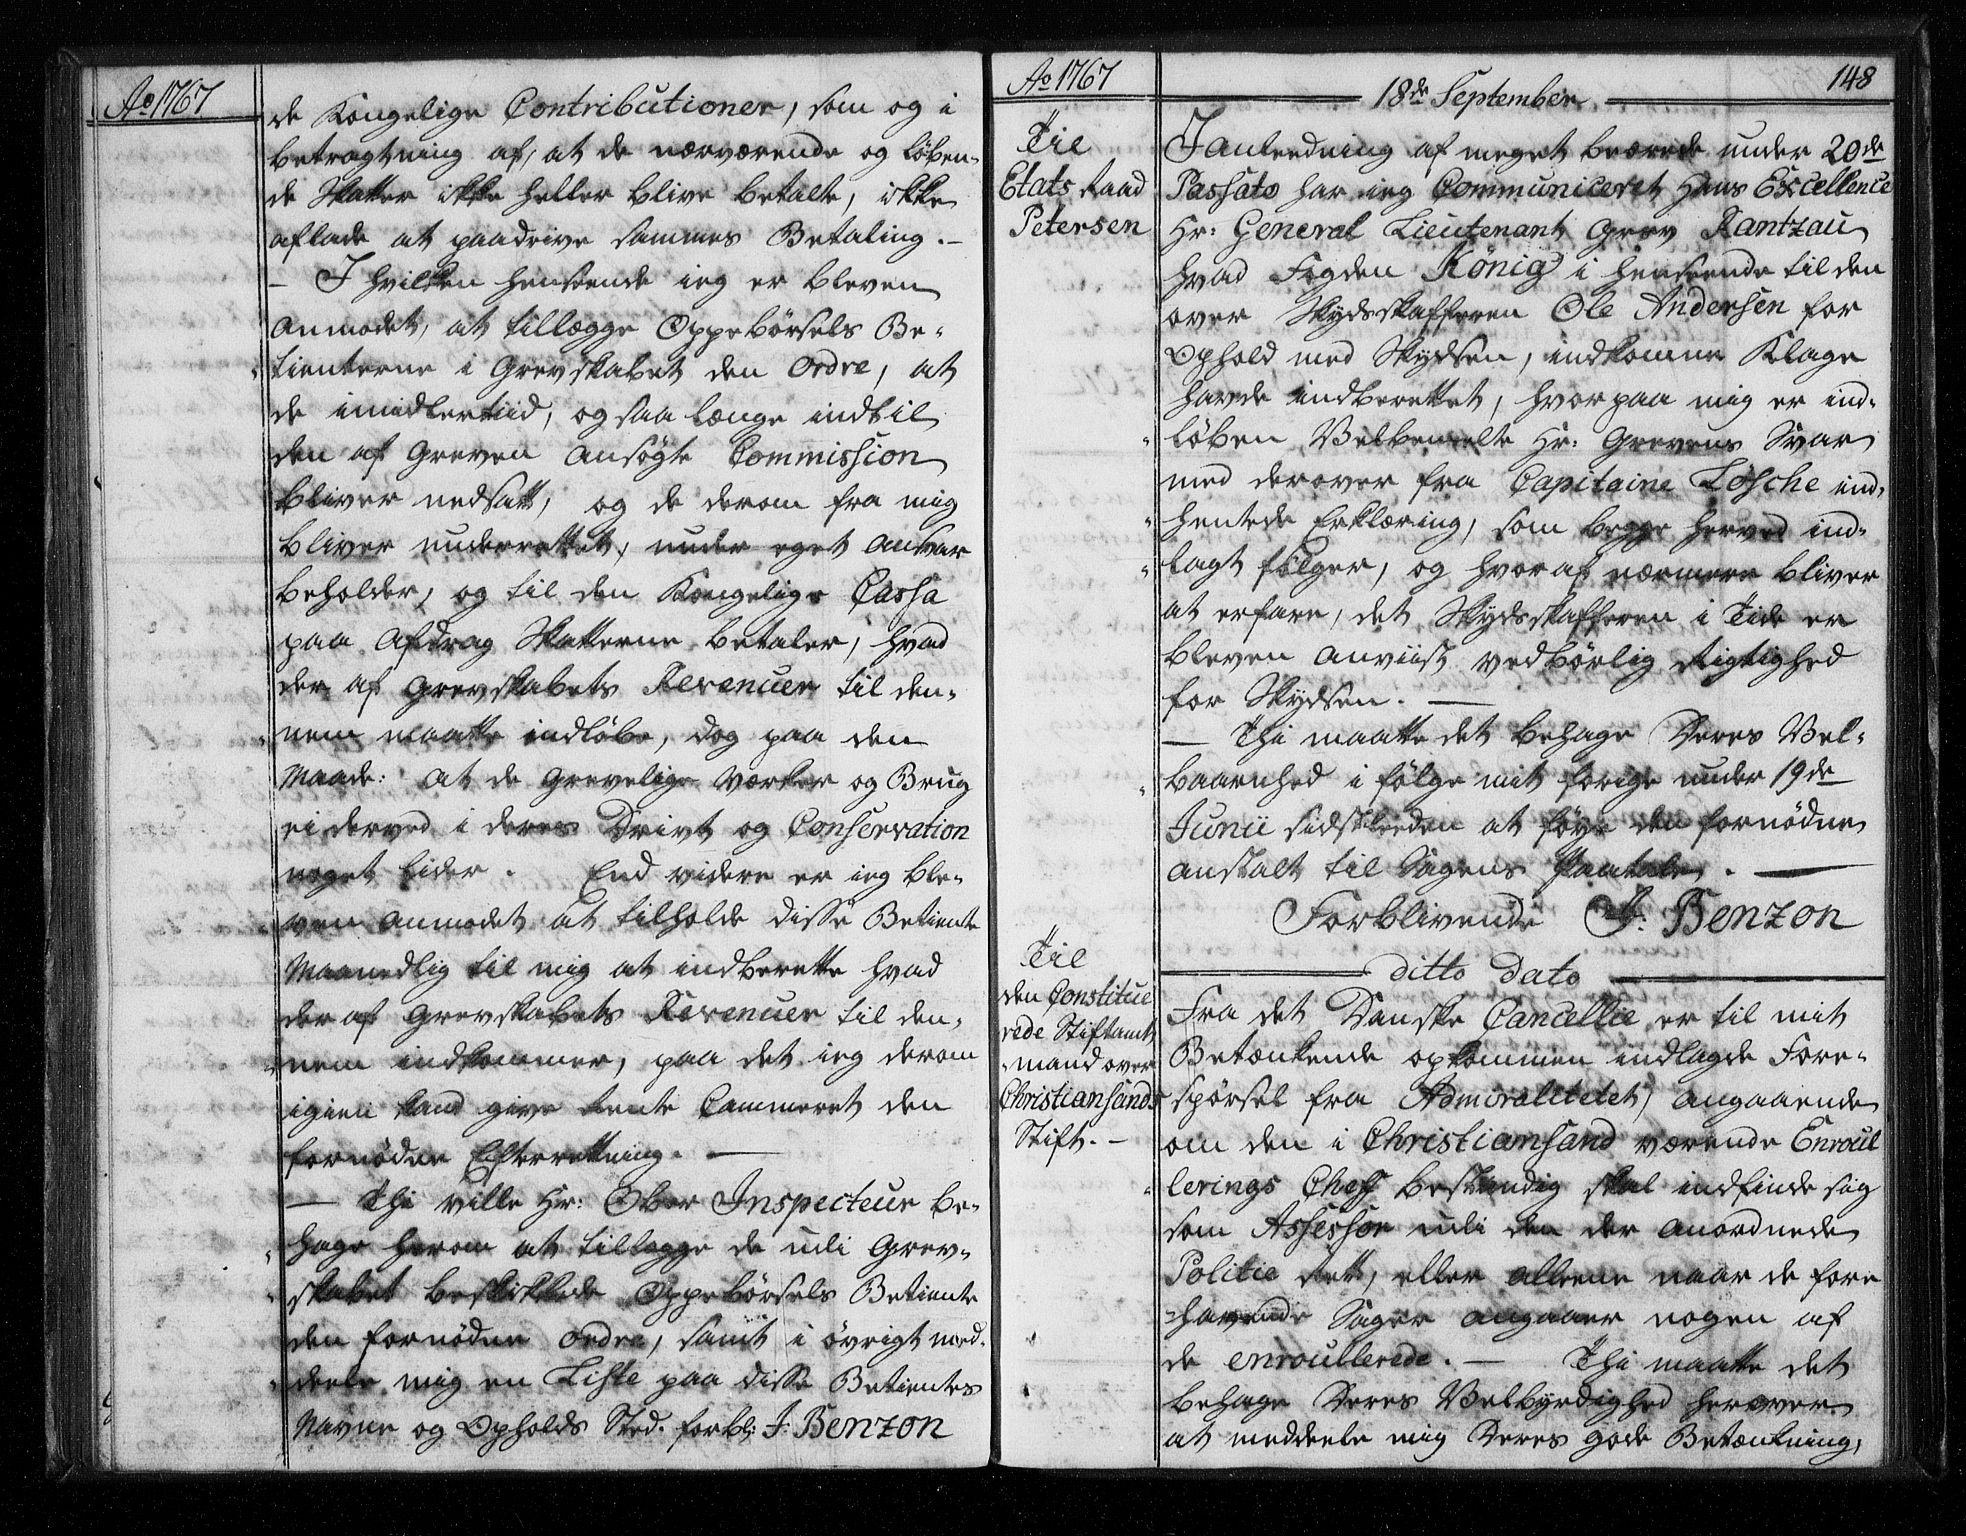 Ao 1767
de Kongelige Contributioner, som og i
betragtning af, at de nærværende og løben-
de Skatter ikke heller blive betalte, ikke
aflade at paadrive sammes Betaling.-
- I hvilken henseende ieg er bleven
anmodet, at tillægge Oppebørsels Be-
tienterne i Grevskabet den Ordre, at
de imidlertiid, og saa længe indtil
den af Greven ansøgte Commission
bliver nedsatt, og de derom fra mig
bliver underrettet, under eget ansvar
beholder, og til den Kongelige Cassa
paa Afdrag Skatterne betaler, hvad
der af Grevskabets Revenuer til den-
nem maatte indløbe, dog paa den
Maade: at de Grevelige Værker og Brug
ei derved i deres Drivt og Conservation
noget lider. End videre er ieg ble-
ven anmodet at tilholde disse Betiente
Maanedlig til mig at indberette hvad
der af Grevskabets Revenuer til den-
nem indkommer, paa det ieg derom
igien kand give Rente Cammeret den
fornødne Efterretning. -
- Thi ville Hr: Ober Inspecteur be-
hage herom at tillægge de udi Grev-
skabet beskikkede Oppebørsels Betiente
den fornødne Ordre, samt i øvrigt med-
deele mig en Liste paa disse Betientes
Navne og Opholds Sted. forbl: J. Benzon
Ao 1767
18de September
148
Til
Etats Raad
Petersen
I anleedning af meget beærede under 20de
Passato har ieg Communiceret Hans Excellence
Hr: General Lieutenant Grev Rantzau
hvad Fogden König i henseende til den
over Skydsskafferen Ole Andersen for
Ophold med Skydsen, indkomne Klage
havde indberettet, hvorpaa mig er ind-
løben Velbemelte Hr: Grevens Svar
med derover fra Capitaine Lösche ind-
hentede Erklæring, som begge herved ind-
lagt følger, og hvoraf nærmere bliver
at erfare, det Skydsskafferen i Tide er
bleven anviist vedbørlig Rigtighed
for Skydsen. -
- Thi maatte det behage Deres Vel-
baarnhed i følge mit forige under 19de
Junii sidstleeden at føye den fornødne
anstalt til Sagens Paatale. -
Forblivende J: Benzon
ditto Dato
Til
den Constitue
rede Stiftamt
-mand over
Christiansands
Stift. -
Fra det Danske Cancellie er til mit
Betænkende opkommen indlagde Fore-
spørsel fra Admiralitetet, angaaende
om den i Christiansand værende Enroul
lerings Cheff bestandig skal indfinde sig
som Assessor udi den der anordnede
Politie Rett, eller alleene naar de fore
-havende Sager angaaer nogen af
de enroullerede. - Thi maatte det
behage Deres Velbyrdighed herover
at meddeele mig Deres gode Betænkning,